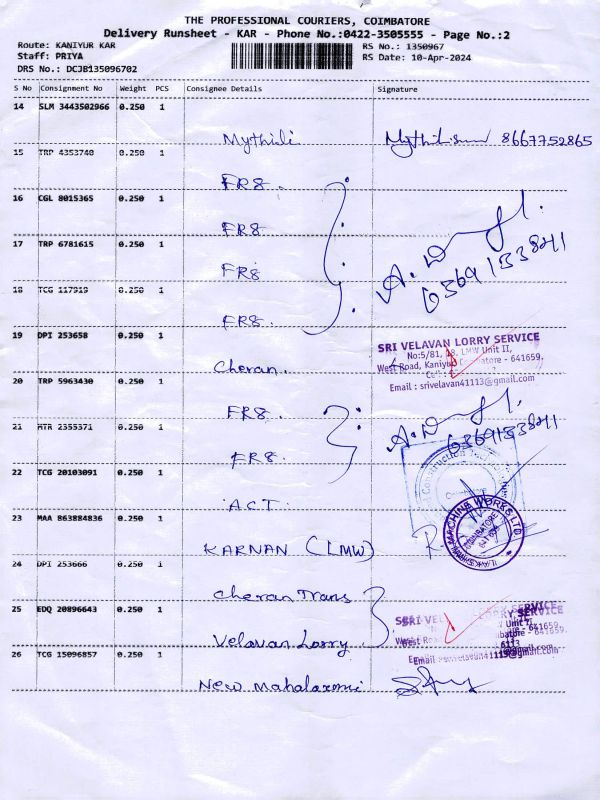 THE PROFESSIONAL COURIERS, COIMBATORE
Delivery Runsheet - KAR - Phone No.:0422-3505555 - Page No.:2
Route: KANIYUR KAR
RS No.: 1350967
Staff: PRIYA
RS Date: 10-Apr-2024
DRS No.: DCJB135096702
S No Consignment No Weight PCS Consignee Details Signature
14 SLM 3443502966 0.250 1
Mythili 8667752865
15 TRP 4353740 0.250 1
FR8.
16 CGL 8015365 0.250 1
FR8
17 TRP 6781615 0.250 1
FR8
18 TCG 117919 0.250 1
FR8.
19 DPI 253658 0.250 1
Cheran.
SRI VELAVAN LORRY SERVICE
No:5/81, 18, LMW Unit II,
West Road, Kaniyur, Coimbatore - 641659.
Email : srivelavan41113@gmail.com
20 TRP 5963430 0.250 1
FR8.
21 MTR 2355371 0.250 1
FR8.
22 TCG 20103091 0.250 1
A.C.T.
23 MAA 863884836 0.250 1
KARNAN (LMW)
24 DPI 253666 0.250 1
Cheran Trans
25 EDQ 20896643 0.250 1
Velavan Lorry
26 TCG 15096857 0.250 1
New Mahalaxmi